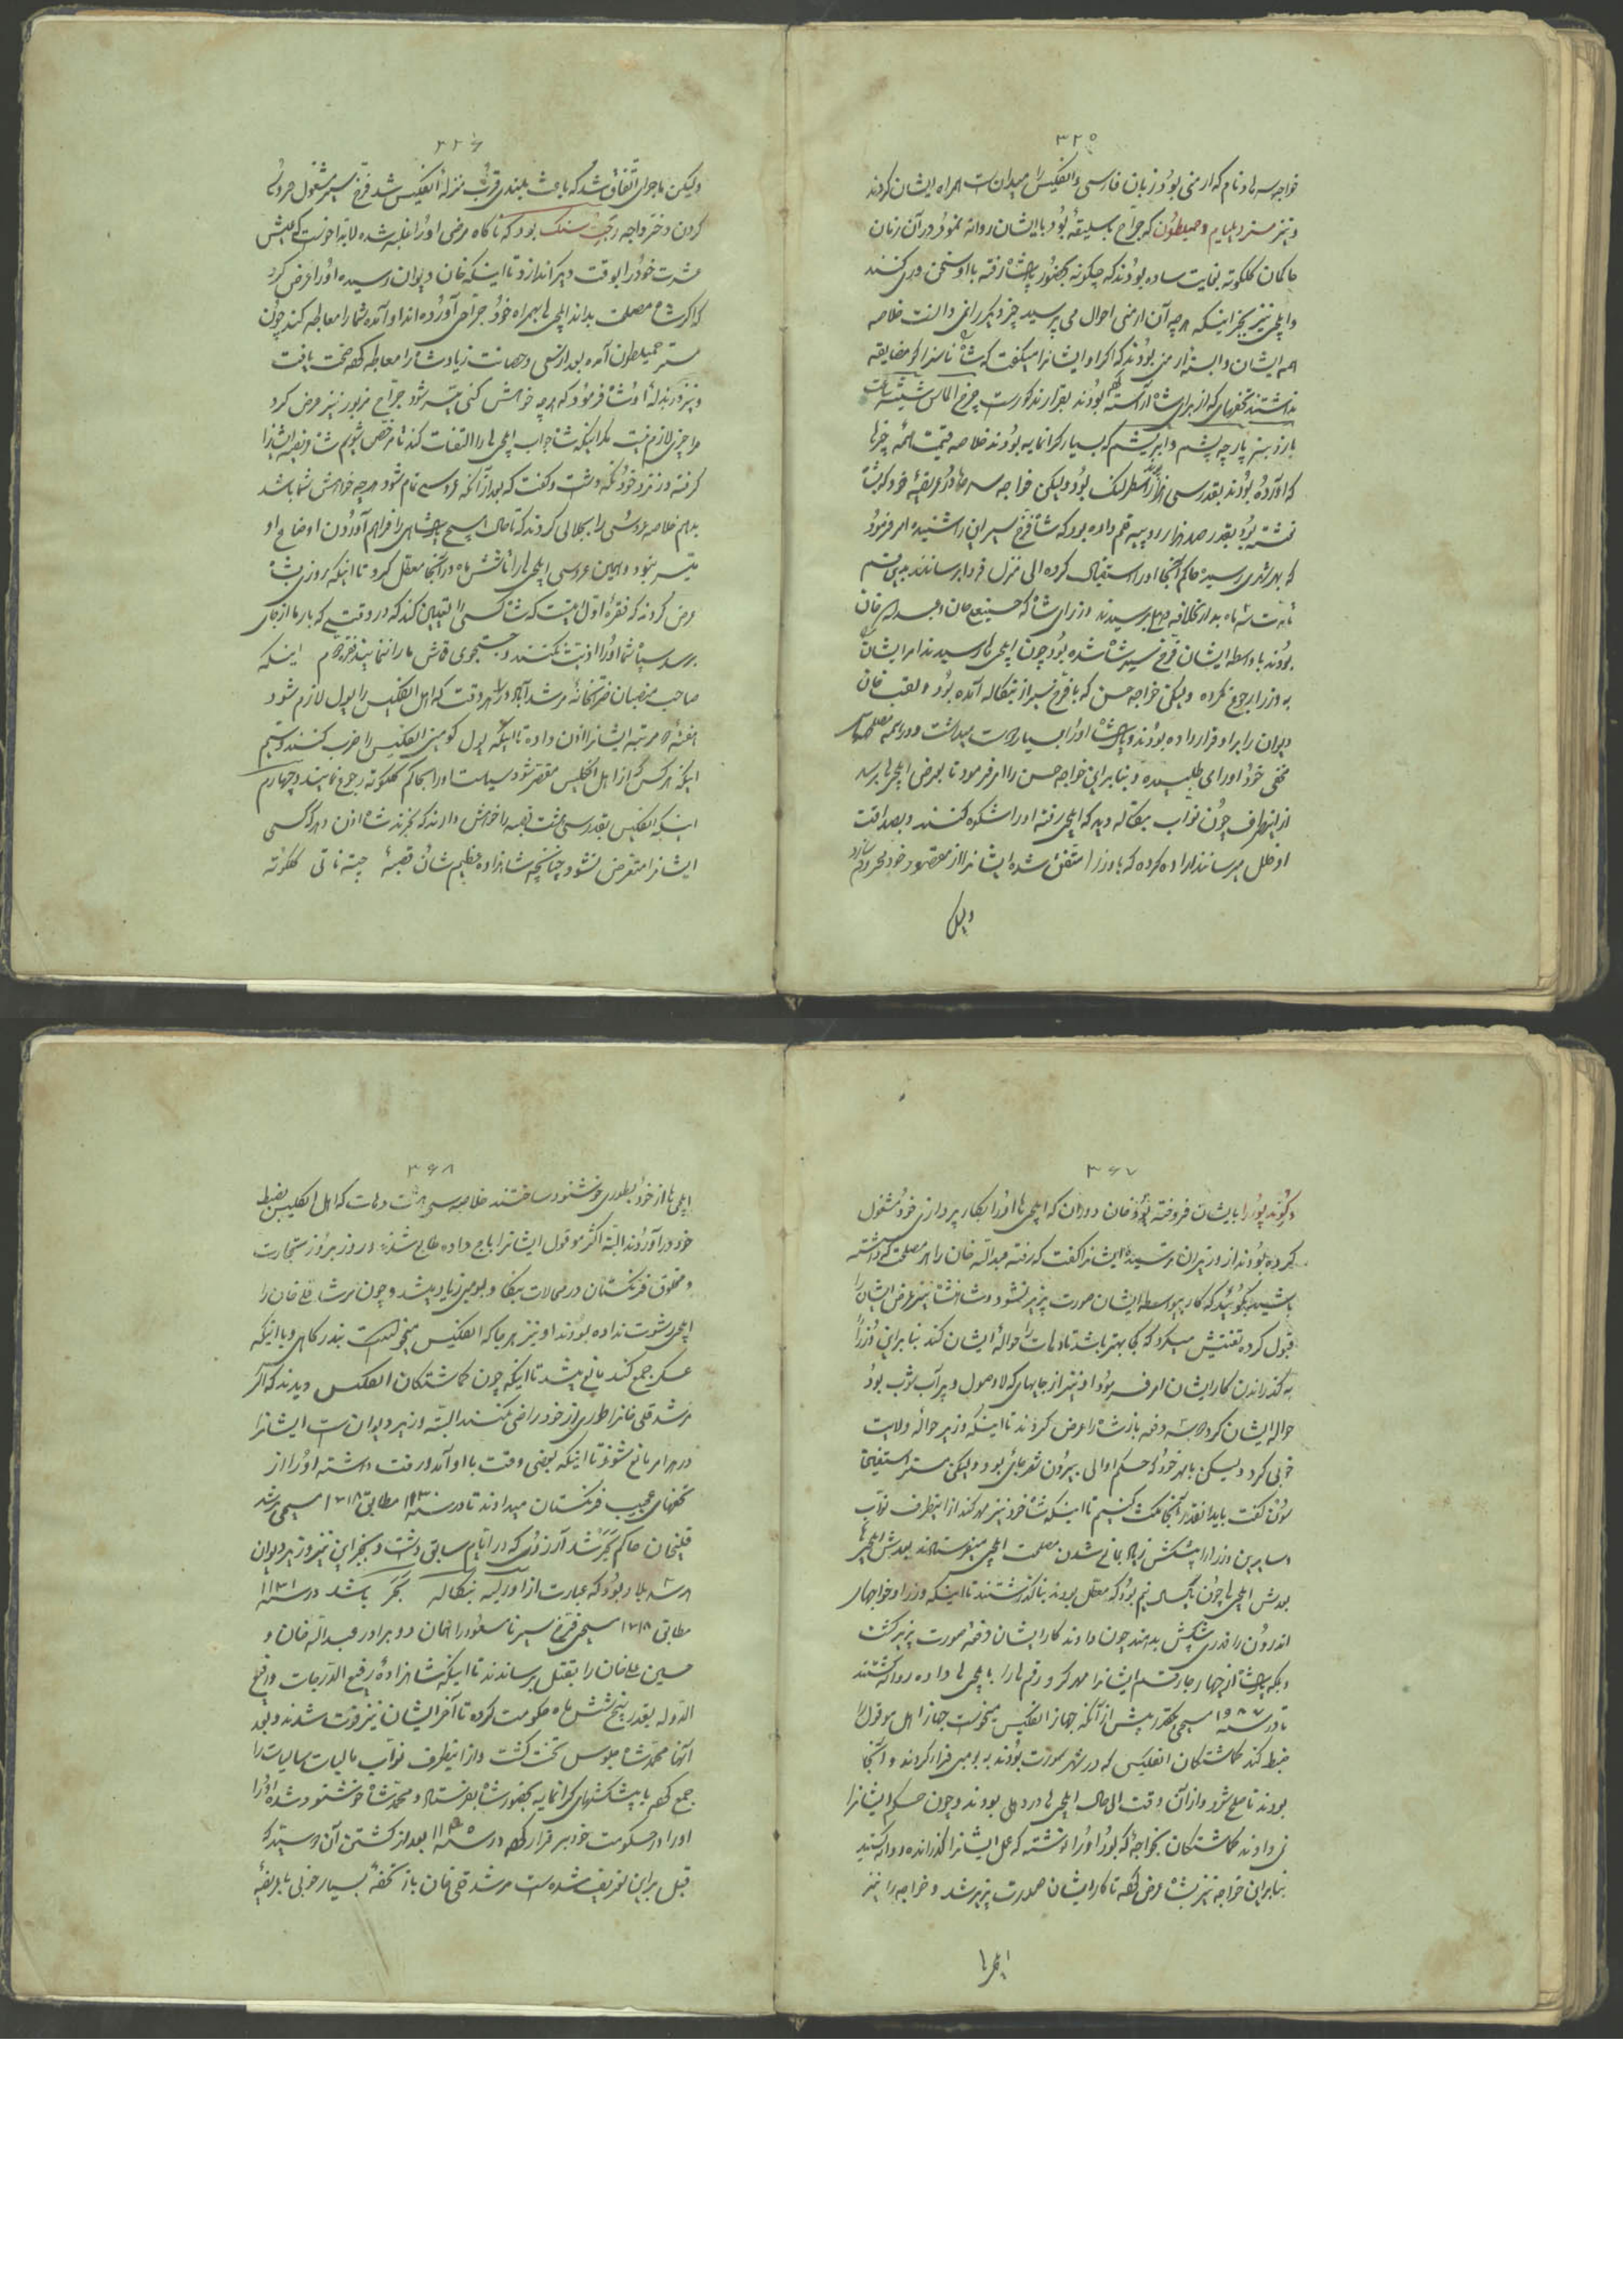 ۳۲۵
خواجه سرهاد نام که ارمنی بود زبان فارسی و انگلیس را میدانست همراه ایشان کردند
و نیز مستر ویلیام و همیلطون که جراح با سلیقهٔ بود با ایشان روانه نمود در آن زمان
حاکمان کلکوته بغایت ساده بودند که چگونه بحضور پادشاه رفته با او سخن وری کنند
و ایلچی نیز بجز اینکه هرچه آن ارمنی احوال می پرسید چیز دیگر را نمی دانست خلاصه
همه ایشان وابسته ارمنی بودند که اگر او ایشانرا میگفت که شاه ناسزا گو مضایقه
نداشتند تحفهای که از برای شاه آراسته بودند بقرار مذکورست چرخ الماس شیشه آلات
بارز بینه پارچه پشم و ابریشم که بسیار گرانمایه بودند خلاصه قیمت همه چیزها
که آورده بودند بقدر سی هزار اسطرلنک بود ولیکن خواجه سرهاد در عریضهٔ خود که بشاه
نوشته بود بقدر صد هزار روپیه قلم داده بود که شاه فرخ سیر این را شنیده امر فرمود
که بهر شهری رسیده حاکم آنجا او را استقبال کرده الی منزل فردا برسانند بدین قسم
مدت سه ماه بدار الخلافه دهلی رسیدند وزرای شاه که حسینعلی خان و عبدالله خان
بودند بواسطه ایشان فرخ سیر شاه شده بود چون ایلچی ها رسیدند امر ایشان
به وزرا رجوع نکرده ولیکن خواجه حسن که با فرخ سیر از بنکاله آمده بود و لقب خان
دیوان را بر او قرار داده بودند و پادشاه او را بسیار دوست میداشت و در همه مصلحتهای
مخفی خود او را می طلبیده و بنا براین خواجه حسن را امر فرمود تا بعرض ایلچی ها برسد
از اینطرف چون نواب بنکاله دید که ایلچی رفته او را شکوه کنند و بصداقت
او خلل میرسانند اراده کرده که با وزرا متفق شده ایشانرا از مقصود خود محروم سازد
ولیکن
۳۲۶
ولیکن ماجرای اتفاق شد که باعث بلندی قرب منزلهٔ انگلیس شد فرخ سیر مشغول عروسی
کردن دختر راجه رجیت سنک بود که ناگاه مرضی او را غلبه شده لابد خواست که عیش
عشرت خود را بوقت دیگر اندازد تا اینکه خان دیوان رسیده او را عرض کرد
که اگر شاه مصلحت بداند ایلچی ها بهمراه خود جراحی آورده اند او آمده شما را معالجه کند چون
مستر همیلطون آمده بعد از سعی و حصانت زیاد شاه را معالجه کرده صحت یافت
و نیز فرزند له او شاه فرمود که هرچه خواهش کنی میسر شود جراح مزبور نیز عرض کرد
مرا چیزی لازم نیست مگر اینکه شاه جواب ایلچی ها را التفات کند تا مرخص شویم شاه عریضه ایشانرا
گرفته در نزد خود نگه داشت و گفت که بعد از آنکه عروسی تمام شود هرچه خواهش شما باشد
بدهم خلاصه عروسی را بجلالی کردند که تا حال هیچ پادشاهی را فراهم آوردن اوضاع او
میسر نبود و همین عروسی ایلچی ها را تا شش ماه در آنجا معطل کرد تا اینکه روزی بشاه
عرض کردند که فقرهٔ اول اینست که شاه کسی را تعیین کند که در وقتی که بار ما از جای
برسد سپاه شما او را اذیت نکنند و جستجوی قماش ما را ننمایند فقره دوم اینکه
صاحب منصبان ضرابخانهٔ مرشدآباد در هر وقت که اهل انگلیس را پول لازم شود
هفتهٔ سه مرتبه ایشانرا اذن داده تا اینکه پول کومپنی انگلیس را ضرب کنند و سیم
اینکه هر کس که از اهل انگلیس مقصر شود سیاست او را بحاکم کلکوته رجوع نمایند و چهارم
اینکه انگلیس بقدر سی هشت قصبه را خواهش دارند که بخرند شاه اذن دهد و کسی
ایشانرا متعرض نشود چنانچه شاهزاده عظیم شان قصبهٔ چیته ناتی کلکوته
۳۶۷
و گوند پور را بایشان فروخته بود و خان دوران که ایلچی ها او را بکار پردازی خود مشغول
کرده بودند از وزیران ترسیده ایشانرا گفت که رفته عبدالله خان را هم مصلحت گوداشته
باشید بگوئید که کار بیواسطه ایشان صورت پذیر نشود و شاهنشاه نیز عرض ایشان را
قبول کرده تفتیش میکرد که کجا بهتر باشد تا دهات را حوالهٔ ایشان کند بنا براین وزرا
به گذراندن کار ایشان او نیز از جایهای که لاوصول و پر آب شوب بود
حواله ایشان کرد دوسه دفعه باز شاه را عرض کردند تا اینکه وزیر حوالهٔ ولایت
خوبی کرد ولیکن بامهر خود که حکم او الی بیرون شهر جاری بود ولیکن مستر استفینان
سون گفت باید انقدر آنجا مکث کنیم تا اینکه شاه خود نیز مهر کند از اینطرف نواب
و سایرین وزرا را پیشکش زیاد بمانع شدن مصلحت ایلچی میفرستادند بعدش ایلچی ها
بعدش ایلچی ها چون یکسال نیم بود که معطل بودند بنا گذاشتند تا اینکه وزرا و خواجهای
اندرون را قدری پیشکش بدهند چون دادند کار ایشان دفعهٔ صورت پذیر گشت
دیگه پادشاه از چهار جا رقم ایشانرا مهر کرد و رقم ها را با ایلچی ها داده روانه گشتند
تا در سنه ۱۹۸۷ مسیحی بقدر پیش از آنکه جهاز انگلیس میخواست جهاز اهل موقول را
ضبط کند گماشتکان انگلیس که در شهر سورت بودند به بومبی فرار کردند و آنجا
بودند تا صلح شود و از آن وقت الی حال ایلچی ها در دهلی بودند و چون حکم ایشانرا
نمی دادند گماشتکان بخواجهٔ که بود او را نوشته که عمل ایشانرا گذرانده روانه کنید
بنا براین خواجه نیز بشاه عرض کرده تا کار ایشان صورت پذیر شد و خواجه را نیز
ایلچی ها
۳۶۸
ایلچی ها از خود بطوری خوشنود ساختند خلاصه سی هشت دهات که اهل انگلیس بضبط
خود در آوردند البته اکثر موقول ایشانرا باج داده طالع شدند و روز بروز تجارت
و مخلوق فرنکستان در محالات بنکاله و بومبی زیاد میشد و چون مرشد قلی خان را
ایلچی رشوت نداده بودند او نیز هر جا که انگلیس میخواست بندرگاهی و یا اینکه
عسکر جمع کند مانع میشد تا اینکه چون گماشتکان انگلیس دیدند که اگر
مرشد قلی خانرا طوری از خود راضی نکنند البته وزیر دیوان است ایشانرا
در هر امر مانع شود تا اینکه بعضی وقت با او آمد و رفت داشته او را از
تحفهای عجیب فرنکستان میدادند تا در سنه ۱۱۳۰ مطابق ۱۷۱۸ مسیحی مرشد
قلیخان حاکم بگر شد آرزوی که در ایام سابق داشت و بجز این نیز وزیر دیوان
هر سه بلاد بود که عبارت از اورلیسه بنکاله بگر باشد در سنه ۱۱۳۱
مطابق ۱۷۱۸ مسیحی فرخ سیر نا مسعود را همان دو برادر عبدالله خان و
حسین علی خان را بقتل برساندند تا اینکه شاهزادهٔ رفیع الدرجات و رفیع
الدوله بقدر پنج شش ماه حکومت کرده تا آخر ایشان نیز فوت شدند و بعد
آنها محمد شاه جلوس تخت گشت و از اینطرف نواب مالیات سالیات را
جمع کرده با پیشکشهای گرانمایه بحضور شاه بفرستاد و محمد شاه خوشنود شده او را
او را در حکومت خود برقرار کرده در سنه ۱۱۳۵ بعد از کشتن آن دو سید که
قبل براین تعریف شده است مرشد قلی خان باز تحفهٔ بسیار خوبی با عریضهٔ